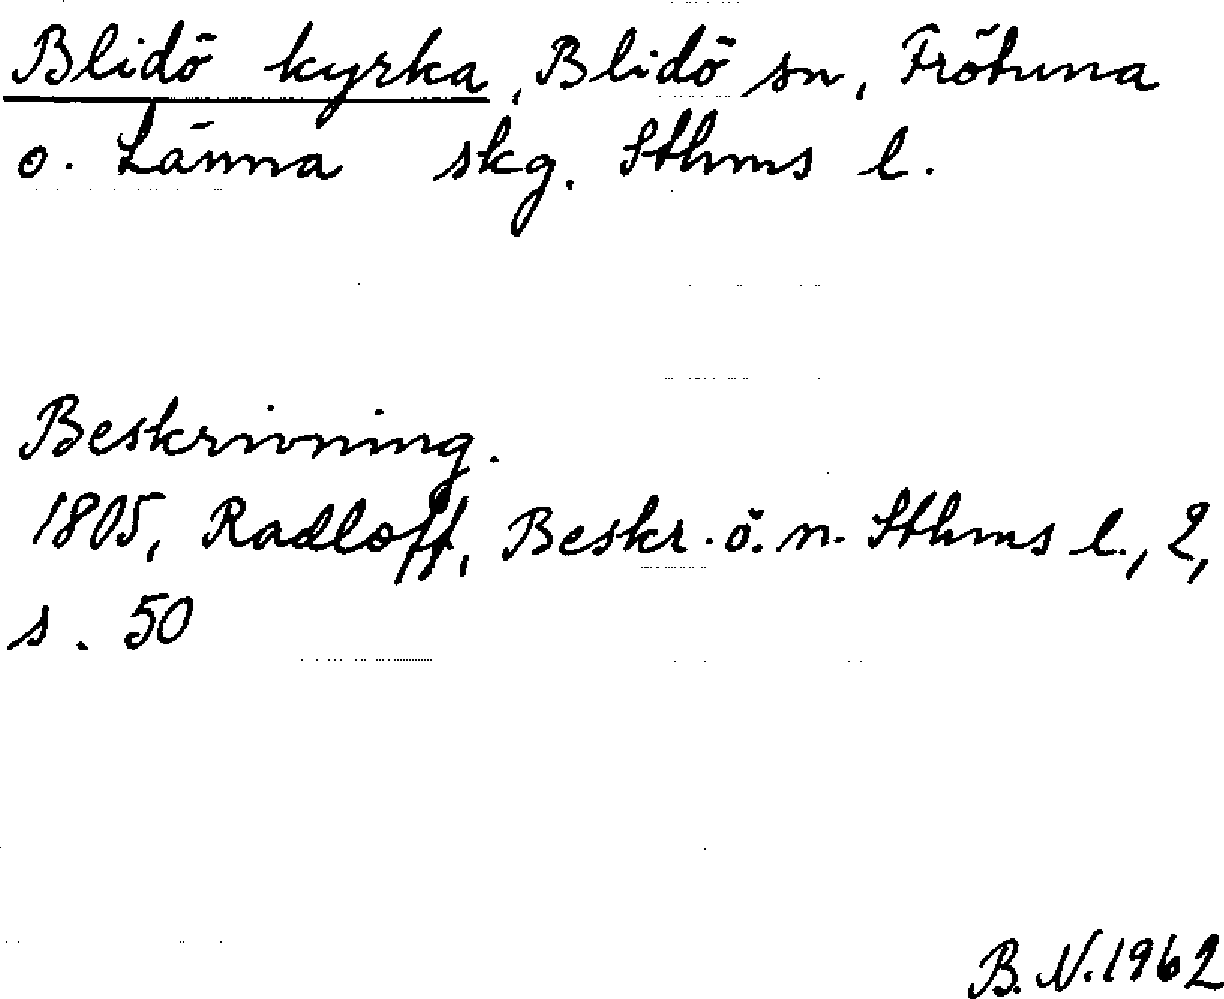 Blidö kyrka, Blidö sn, Frötuna
o. Länna skg. Sthms l.
Beskrivning.
1805, Radloff, Beskr. ö. n. Sthms l., 2,
s. 50
B. N. 1962